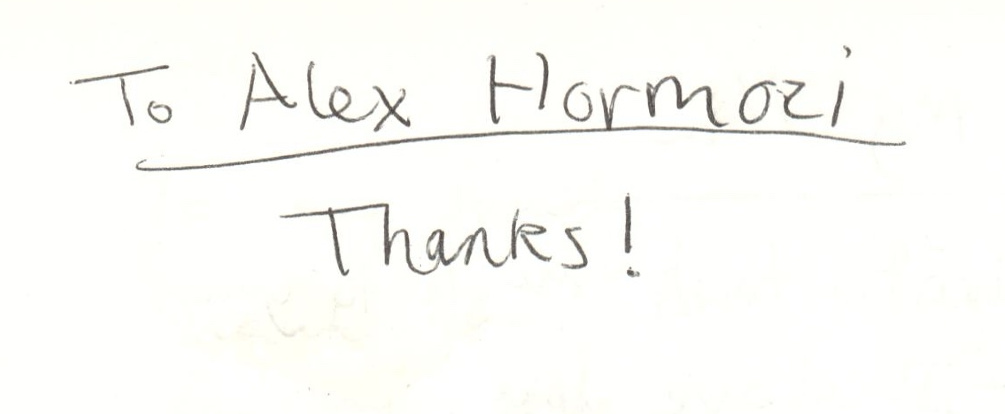 To Alex Hormozi
Thanks!